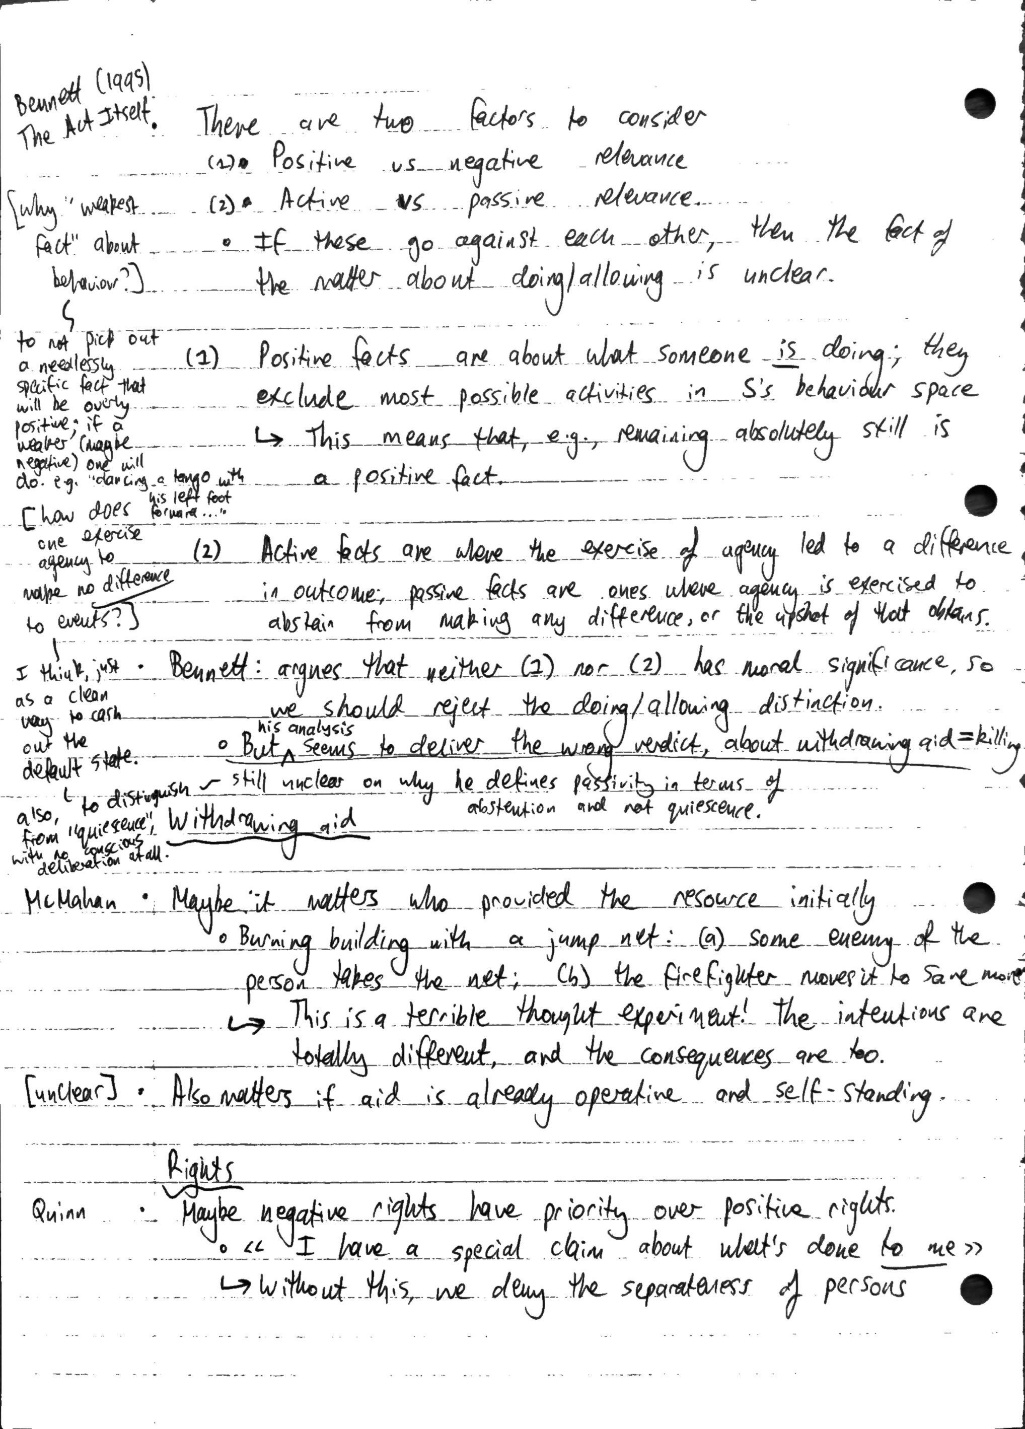 Bennett (1995)
The Act Itself.
There are two factors to consider
(1) • Positive vs negative relevance
(2) • Active vs passive relevance.
◦ If these go against each other, then the fact of
the matter about doing/allowing is unclear.
[why "weakest
fact" about
behaviour?]
to not pick out
a needlessly
specific fact that
will be overly
positive; if a
weaker (maybe
negative) one will
do. e.g. "dancing a tango with
his left foot
forward..."
(1) Positive facts are about what someone is doing; they
exclude most possible activities in S's behaviour space
↳ This means that, e.g., remaining absolutely still is
a positive fact.
[how does
one exercise
agency to
make no difference
to events?]
(2) Active facts are where the exercise of agency led to a difference
in outcome; passive facts are ones where agency is exercised to
abstain from making any difference, or the upshot of that obtains.
I think, just
as a clean
way to cash
out the
default state.
↳ to distinguish
also,
from "quiescence",
with no conscious
deliberation at all.
• Bennett: argues that neither (1) nor (2) has moral significance, so
we should reject the doing/allowing distinction.
◦ But ^ his analysis seems to deliver the wrong verdict, about withdrawing aid = killing
still unclear on why he defines passivity in terms of
abstention and not quiescence.
Withdrawing aid
McMahan • Maybe it matters who provided the resource initially
◦ Burning building with a jump net: (a) some enemy of the
person takes the net; (b) the firefighter moves it to save more
↳ This is a terrible thought experiment! The intentions are
totally different, and the consequences are too.
[unclear] • Also matters if aid is already operative and self-standing.
Rights
Quinn • Maybe negative rights have priority over positive rights.
◦ << I have a special claim about what's done to me >>
↳ Without this, we deny the separateness of persons